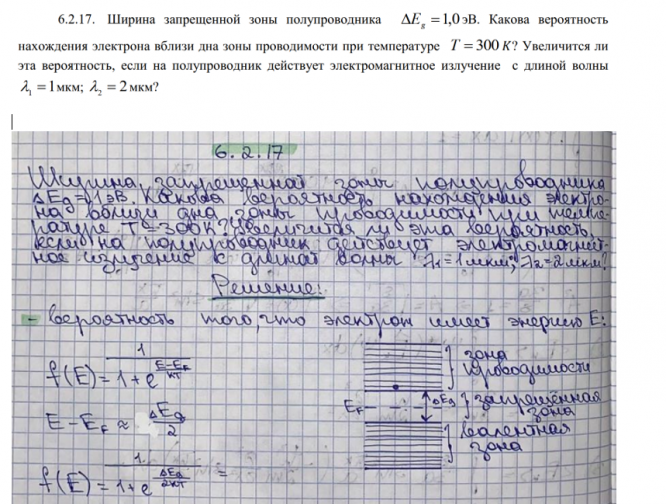 6.2.17. Ширина запрещенной зоны полупроводника ΔE_g = 1,0 эВ. Какова вероятность
нахождения электрона вблизи дна зоны проводимости при температуре T = 300 K? Увеличится ли
эта вероятность, если на полупроводник действует электромагнитное излучение с длиной волны
λ₁ = 1 мкм; λ₂ = 2 мкм?
6.2.17
Ширина запрещенной зоны полупроводника
ΔEg=1 эВ. Какова вероятность нахождения электро-
на вблизи дна зоны проводимости при темпе-
ратуре T=300K? Увеличится ли эта вероятность,
если на полупроводник действует электромагнит-
ное излучение с длиной волны λ1=1мкм; λ2=2мкм?
Решение:
- вероятность того, что электрон имеет энергию E:
f(E) = 1 / (1 + e^((E-E_F)/kT))
E - E_F ≈ ΔEg / 2
f(E) = 1 / (1 + e^(ΔEg/2kT)) =
зона
проводимости
E_F
ΔEg
запрещённая
зона
валентная
зона